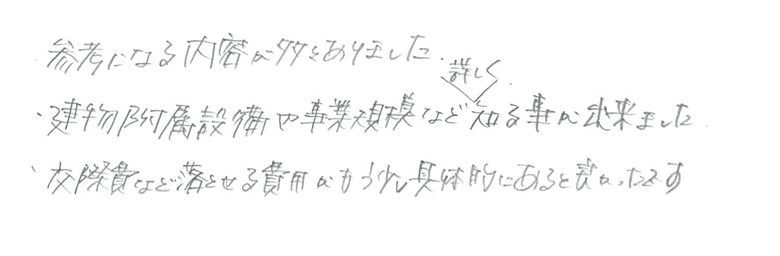 参考になる内容が多々ありました.
・建物附属設備や事業規模など詳しく知る事が出来ました
・交際費など落とせる費用がもう少し具体的にあると良かったです